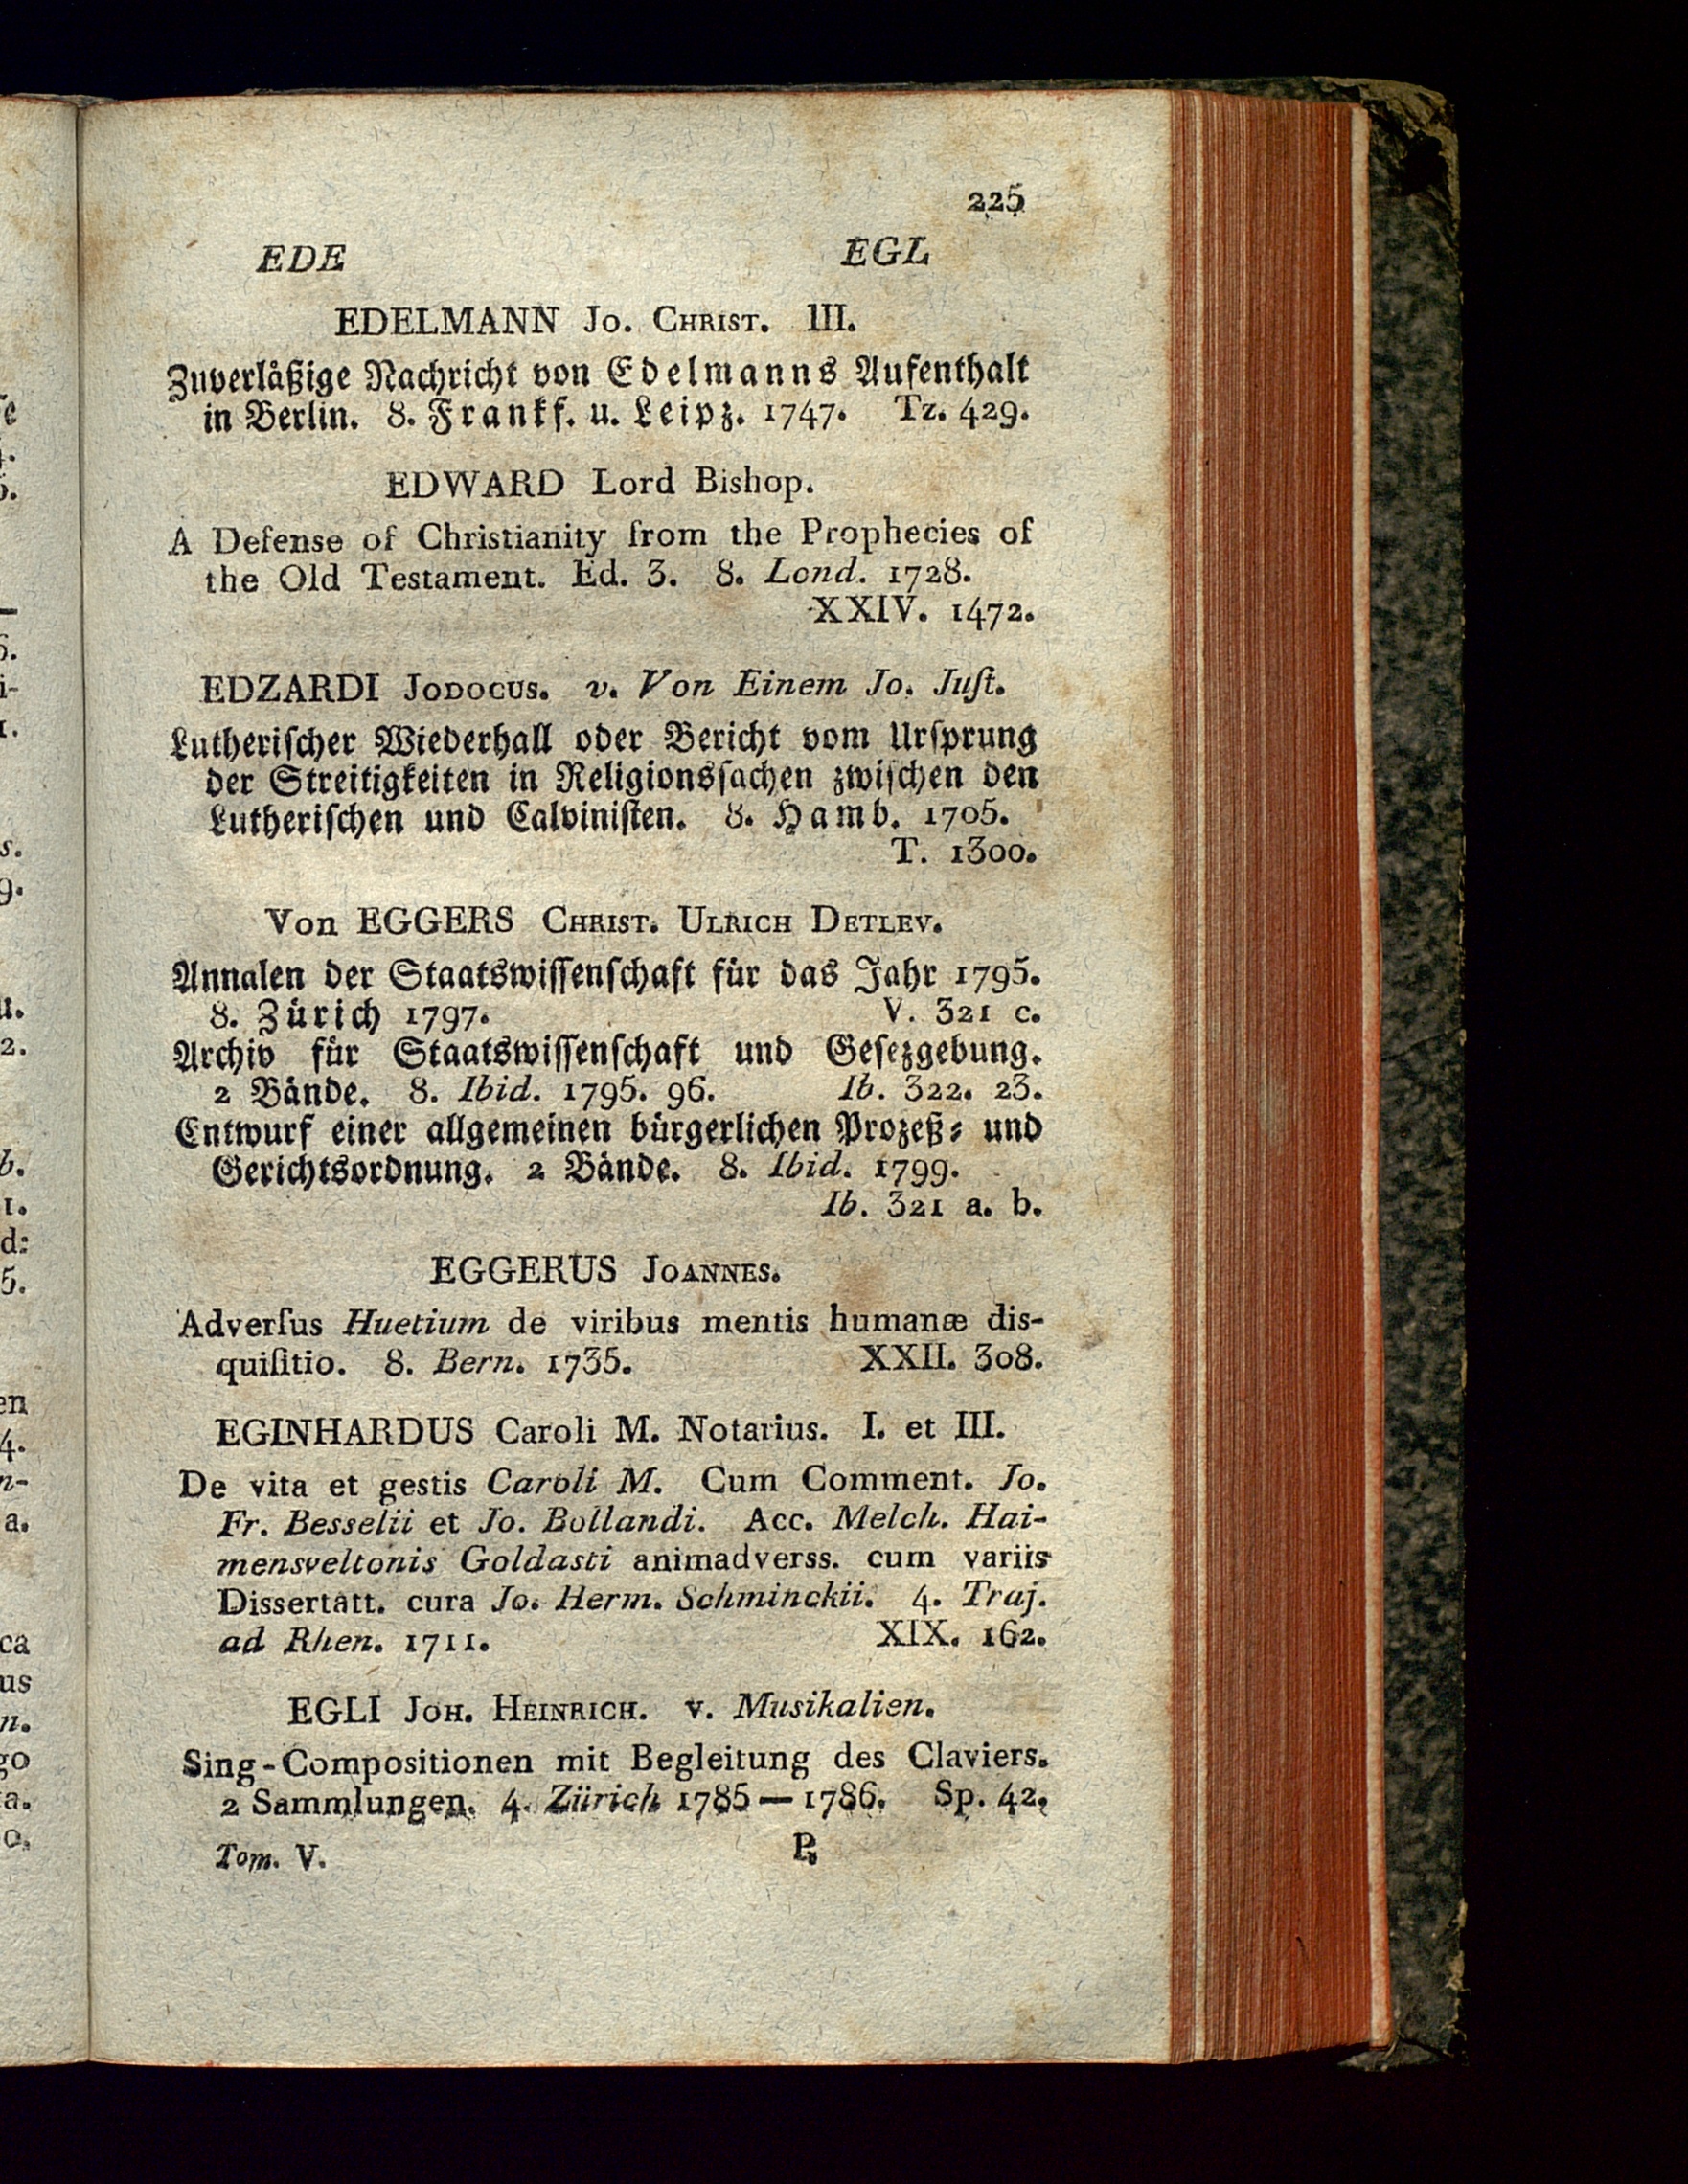 225
EDE EGL
EDELMANN Jo. Christ. III.
Zuverläßige Nachricht von Edelmanns Aufenthalt
in Berlin. 8. Frankf. u. Leipz. 1747. Tz. 429.
EDWARD Lord Bishop.
A Defense of Christianity from the Prophecies of
the Old Testament. Ed. 3. 8. Lond. 1728.
XXIV. 1472.
EDZARDI Jodocus. v. Von Einem Jo. Juſt.
Lutheriſcher Wiederhall oder Bericht vom Urſprung
der Streitigkeiten in Religionsſachen zwiſchen den
Lutheriſchen und Calviniſten. 8. Hamb. 1705.
T. 1300.
Von EGGERS Christ. Ulrich Detlev.
Annalen der Staatswiſſenſchaft für das Jahr 1795.
8. Zürich 1797. V. 321 c.
Archiv für Staatswiſſenſchaft und Geſezgebung.
2 Bände. 8. Ibid. 1795. 96. Ib. 322. 23.
Entwurf einer allgemeinen bürgerlichen Prozeß- und
Gerichtsordnung. 2 Bände. 8. Ibid. 1799.
Ib. 321 a. b.
EGGERUS Joannes.
Adverſus Huetium de viribus mentis humanæ dis-
quiſitio. 8. Bern. 1735. XXII. 308.
EGINHARDUS Caroli M. Notarius. I. et III.
De vita et gestis Caroli M. Cum Comment. Jo.
Fr. Besselii et Jo. Bollandi. Acc. Melch. Hai-
mensveltonis Goldasti animadverss. cum variis
Dissertatt. cura Jo. Herm. Schminckii. 4. Traj.
ad Rhen. 1711. XIX. 162.
EGLI Joh. Heinrich. v. Musikalien.
Sing-Compositionen mit Begleitung des Claviers.
2 Sammlungen. 4. Zürich 1785—1786. Sp. 42.
Tom. V. P.